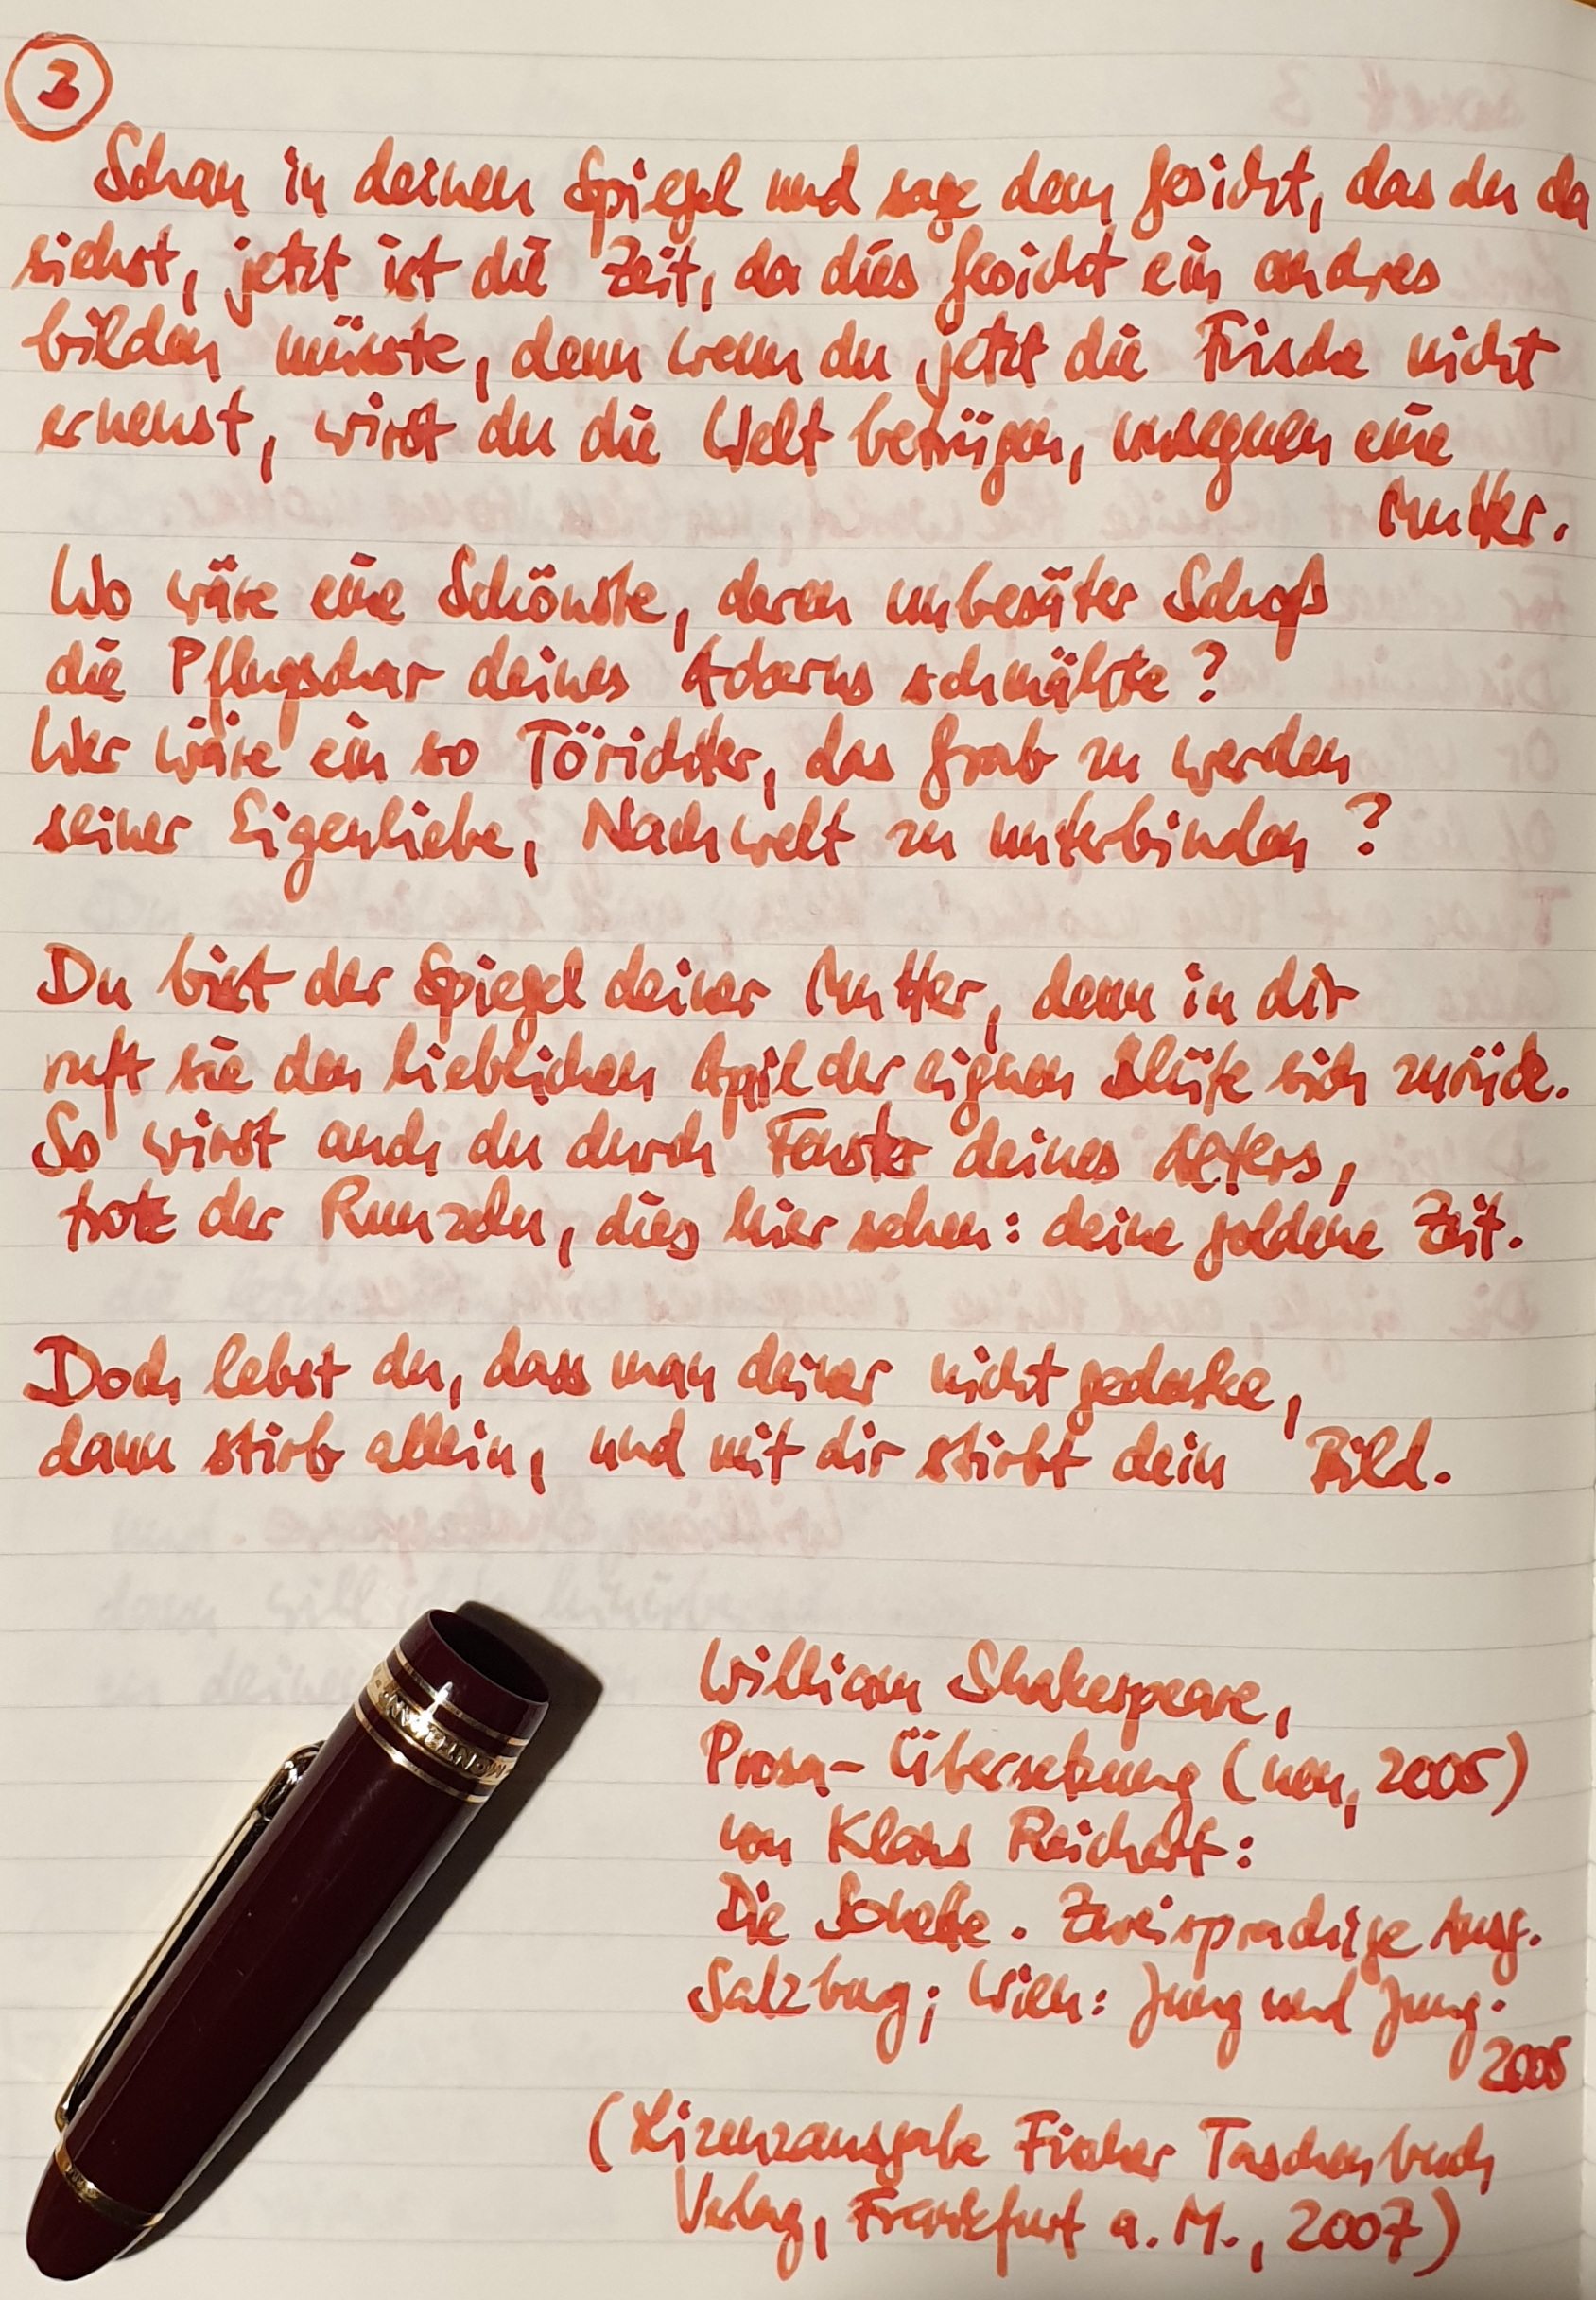 3
Schau in deinen Spiegel und sage dem Gesicht, das du da
siehst, jetzt ist die Zeit, da dies Gesicht ein andres
bilden müsste, denn wenn du jetzt die Frische nicht
erneust, wirst du die Welt betrügen, unsegnen eine
Mutter.
Wo wäre eine Schönste, deren unbesäter Schoß
die Pflugschar deines Ackerns schmähte?
Wer wäre ein so Törichter, das Grab zu werden
seiner Eigenliebe, Nachwelt zu unterbinden?
Du bist der Spiegel deiner Mutter, denn in dir
ruft sie den lieblichen April der eignen Blüte sich zurück.
So wirst auch du durch Fenster deines Alters,
trotz der Runzeln, dies hier sehen: deine goldene Zeit.
Doch lebst du, dass man deiner nicht gedenke,
dann stirb allein, und mit dir stirbt dein Bild.
William Shakespeare,
Prosa-Übersetzung (neu, 2005)
von Klaus Reichert:
Die Sonette. Zweisprachige Ausg.
Salzburg; Wien: Jung und Jung.
2005
(Lizenzausgabe Fischer Taschenbuch
Verlag, Frankfurt a.M., 2007)